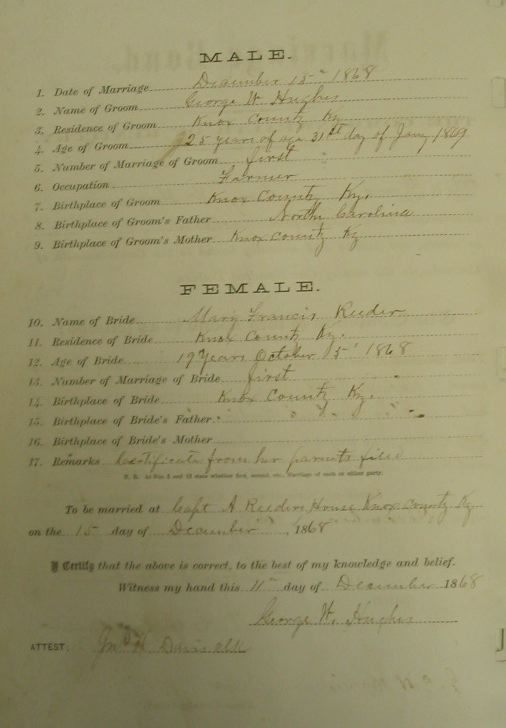 MALE.
1. Date of Marriage December 15th 1868
2. Name of Groom George W. Hughes
3. Residence of Groom Knox County Ky
4. Age of Groom 25 years of age 31st day of Jany 1869
5. Number of Marriage of Groom first
6. Occupation Farmer
7. Birthplace of Groom Knox County Ky.
8. Birthplace of Groom's Father North Carolina
9. Birthplace of Groom's Mother Knox County Ky
FEMALE.
10. Name of Bride Mary Francis Reeder
11. Residence of Bride Knox County Ky.
12. Age of Bride 19 Years October 15 1868
13. Number of Marriage of Bride first
14. Birthplace of Bride Knox County Ky.
15. Birthplace of Bride's Father " " " "
16. Birthplace of Bride's Mother
17. Remarks Certificate from her parents filed
N. B. At Nos. 5 and 13 state whether first, second, etc., Marriage of each or either party.
To be married at Capt A Reeders House Knox County Ky
on the 15 day of December, 1868
I Certify that the above is correct, to the best of my knowledge and belief.
Witness my hand this 11th day of December 1868
George W. Hughes
ATTEST: Jno H Davis clk